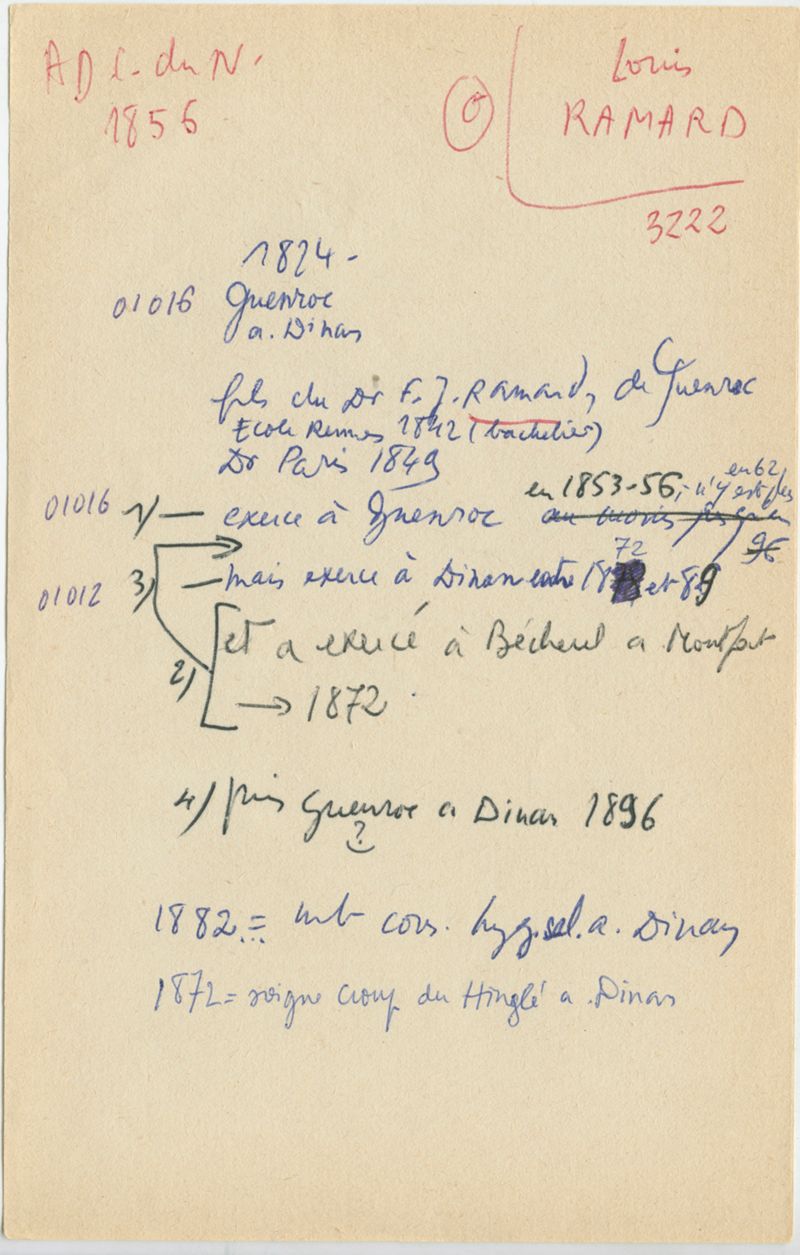 AD C. du N.
1856
Louis
RAMARD
3222
1824-
01016 Guenroc
a. Dinan
fils du Dr F. J. Ramard, de Guenroc
Ecole Rennes 1842 (bachelier)
Dr Paris 1849
en 1853-56, n'y est plus en 62,
01016 1) — exerce à Guenroc au moins jusqu'en 96
72
01012 3) — mais exerce à Dinan entre 18 et 89
2) et a exercé à Bécherel a Montfort
→ 1872
4) puis Guenroc a Dinan 1896
?
1882 = mb cons. hyg. sal. a. Dinan
1872 = soigne croup du Hinglé a Dinan